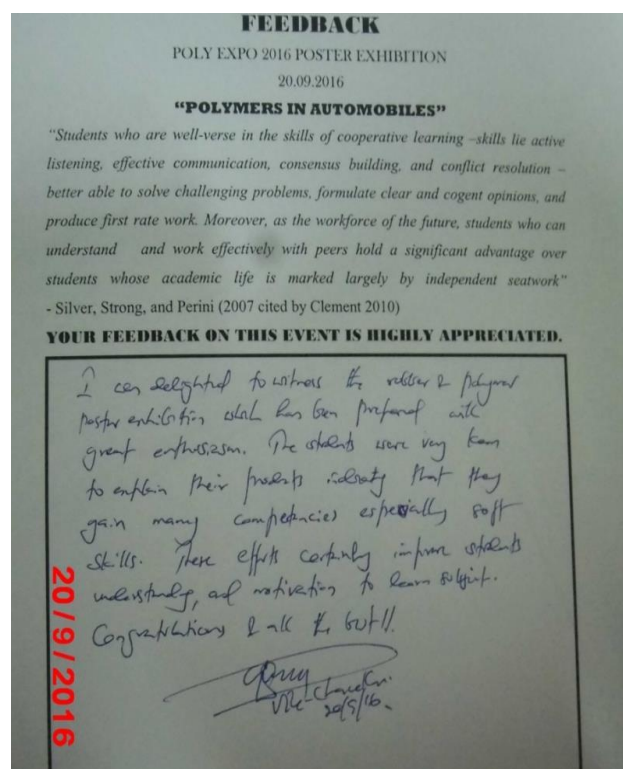 FEEDBACK
POLY EXPO 2016 POSTER EXHIBITION
20.09.2016
“POLYMERS IN AUTOMOBILES”
“Students who are well-verse in the skills of cooperative learning –skills lie active
listening, effective communication, consensus building, and conflict resolution –
better able to solve challenging problems, formulate clear and cogent opinions, and
produce first rate work. Moreover, as the workforce of the future, students who can
understand and work effectively with peers hold a significant advantage over
students whose academic life is marked largely by independent seatwork”
- Silver, Strong, and Perini (2007 cited by Clement 2010)
YOUR FEEDBACK ON THIS EVENT IS HIGHLY APPRECIATED.
I delighted to witness the rubber & polymer
poster exhibition which has been prepared with
great enthusiasm. The students were very keen
to explain their products that they
gain many competencies especially soft
skills. These efforts certainly improve students
understanding, and motivation to learn subject.
Congratulations & all the best!!
Vice-Chancellor
20/9/16.
20/9/2016